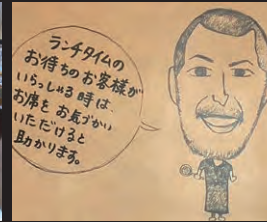 ランチタイムの
お待ちのお客様が
いらっしゃる時は、
お席をお気づかい
いただけると
助かります。